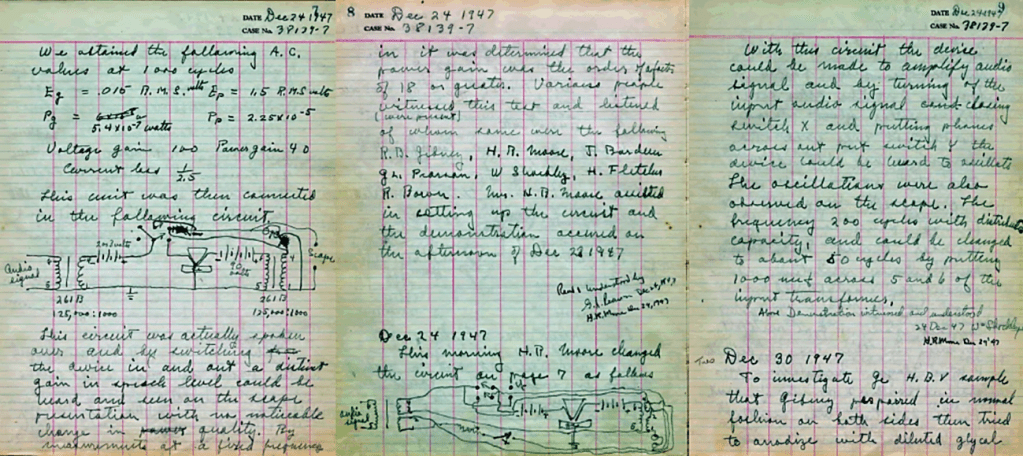 7
DATE Dec 24 1947
CASE No. 38139-7
We obtained the following A.C.
values at 1000 cycles
Eg = .015 R.M.S. volts Ep = 1.5 R.M.S volts
Pg = Pp = 2.25x10-5
5.4x10-7 watts
Voltage gain 100 Power gain 40
Current loss 1/2.5
This unit was then connected
in the following circuit
Scope
volts
volts
audio
signal
261B 261B
125,000:1000 125,000:1000
This circuit was actually spoken
over and by switching
the device in and out a distinct
gain in speech level could be
heard and seen on the scope
presentation with no noticeable
change in quality. By
measurements at a fixed frequency
8 DATE Dec 24 1947
CASE No. 38139-7
in it was determined that the
power gain was the order of a factor
of 18 or greater. Various people
witnessed this test and listened
(were present)
of whom some were the following
R.B. Gibney, H.R. Moore, J. Bardeen
G.L. Pearson, W Shockley, H. Fletcher
R. Bown. Mr. H.R. Moore assisted
in setting up the circuit and
the demonstration occurred on
the afternoon of Dec 23 1947
Read & understood by
G.L. Pearson Dec 24, 1947
H.R. Moore Dec 24, 1947
Dec 24 1947
This morning H.R. Moore changed
the circuit on page 7 as follows
audio
signal
9
DATE Dec 24 1947
CASE No. 38139-7
With this circuit the device
could be made to amplify audio
signal and by turning off the
input audio signal and closing
switch X and putting phones
across out put switch Y the
device could be heard to oscillate
The oscillations were also
observed on the scope. The
frequency 200 cycles with distributed
capacity, and could be changed
to about 50 cycles by putting
1000 mmf across 5 and 6 of the
input transformer.
Above Demonstration witnessed and understood
24 Dec 47 Wm Shockley
H.R. Moore Dec 24 '47
Dec 30 1947
To investigate Ge H.B.V sample
that Gibney prepared in normal
fashion on both sides then tried
to anodize with diluted glycol